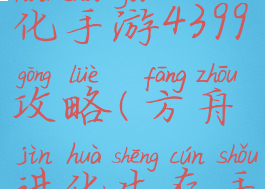 化手游4399
gōng lüè fāng zhōu
攻略(方舟
jìn huà shēng cún shǒu
进化生存手